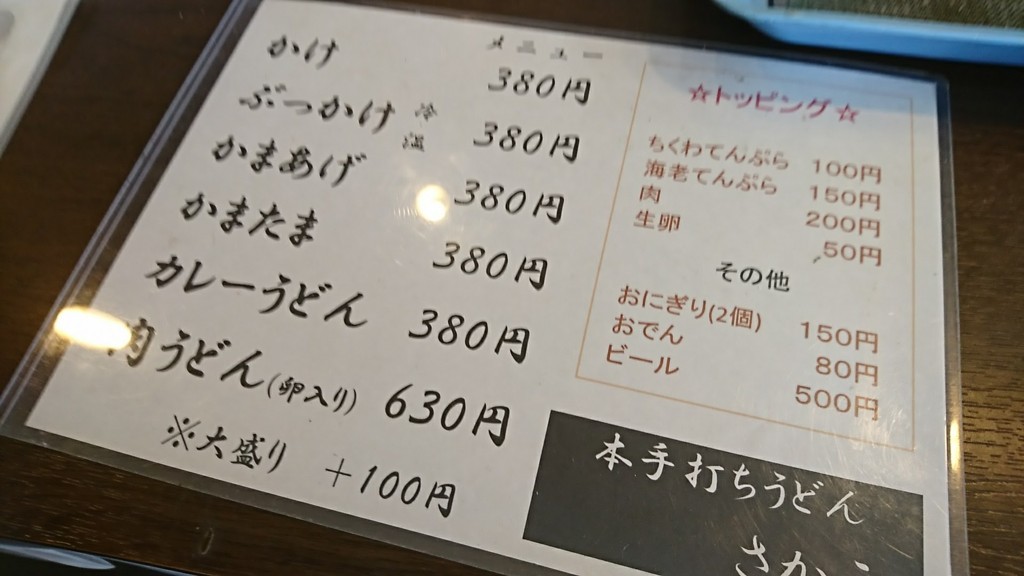 メニュー
かけ 380円
ぶっかけ 冷 温 380円
かまあげ 380円
かまたま 380円
カレーうどん 380円
肉うどん(卵入り) 630円
※大盛り +100円
☆トッピング☆
ちくわてんぷら 100円
海老てんぷら 150円
肉 200円
生卵 50円
その他
おにぎり(2個) 150円
おでん 80円
ビール 500円
本手打ちうどん